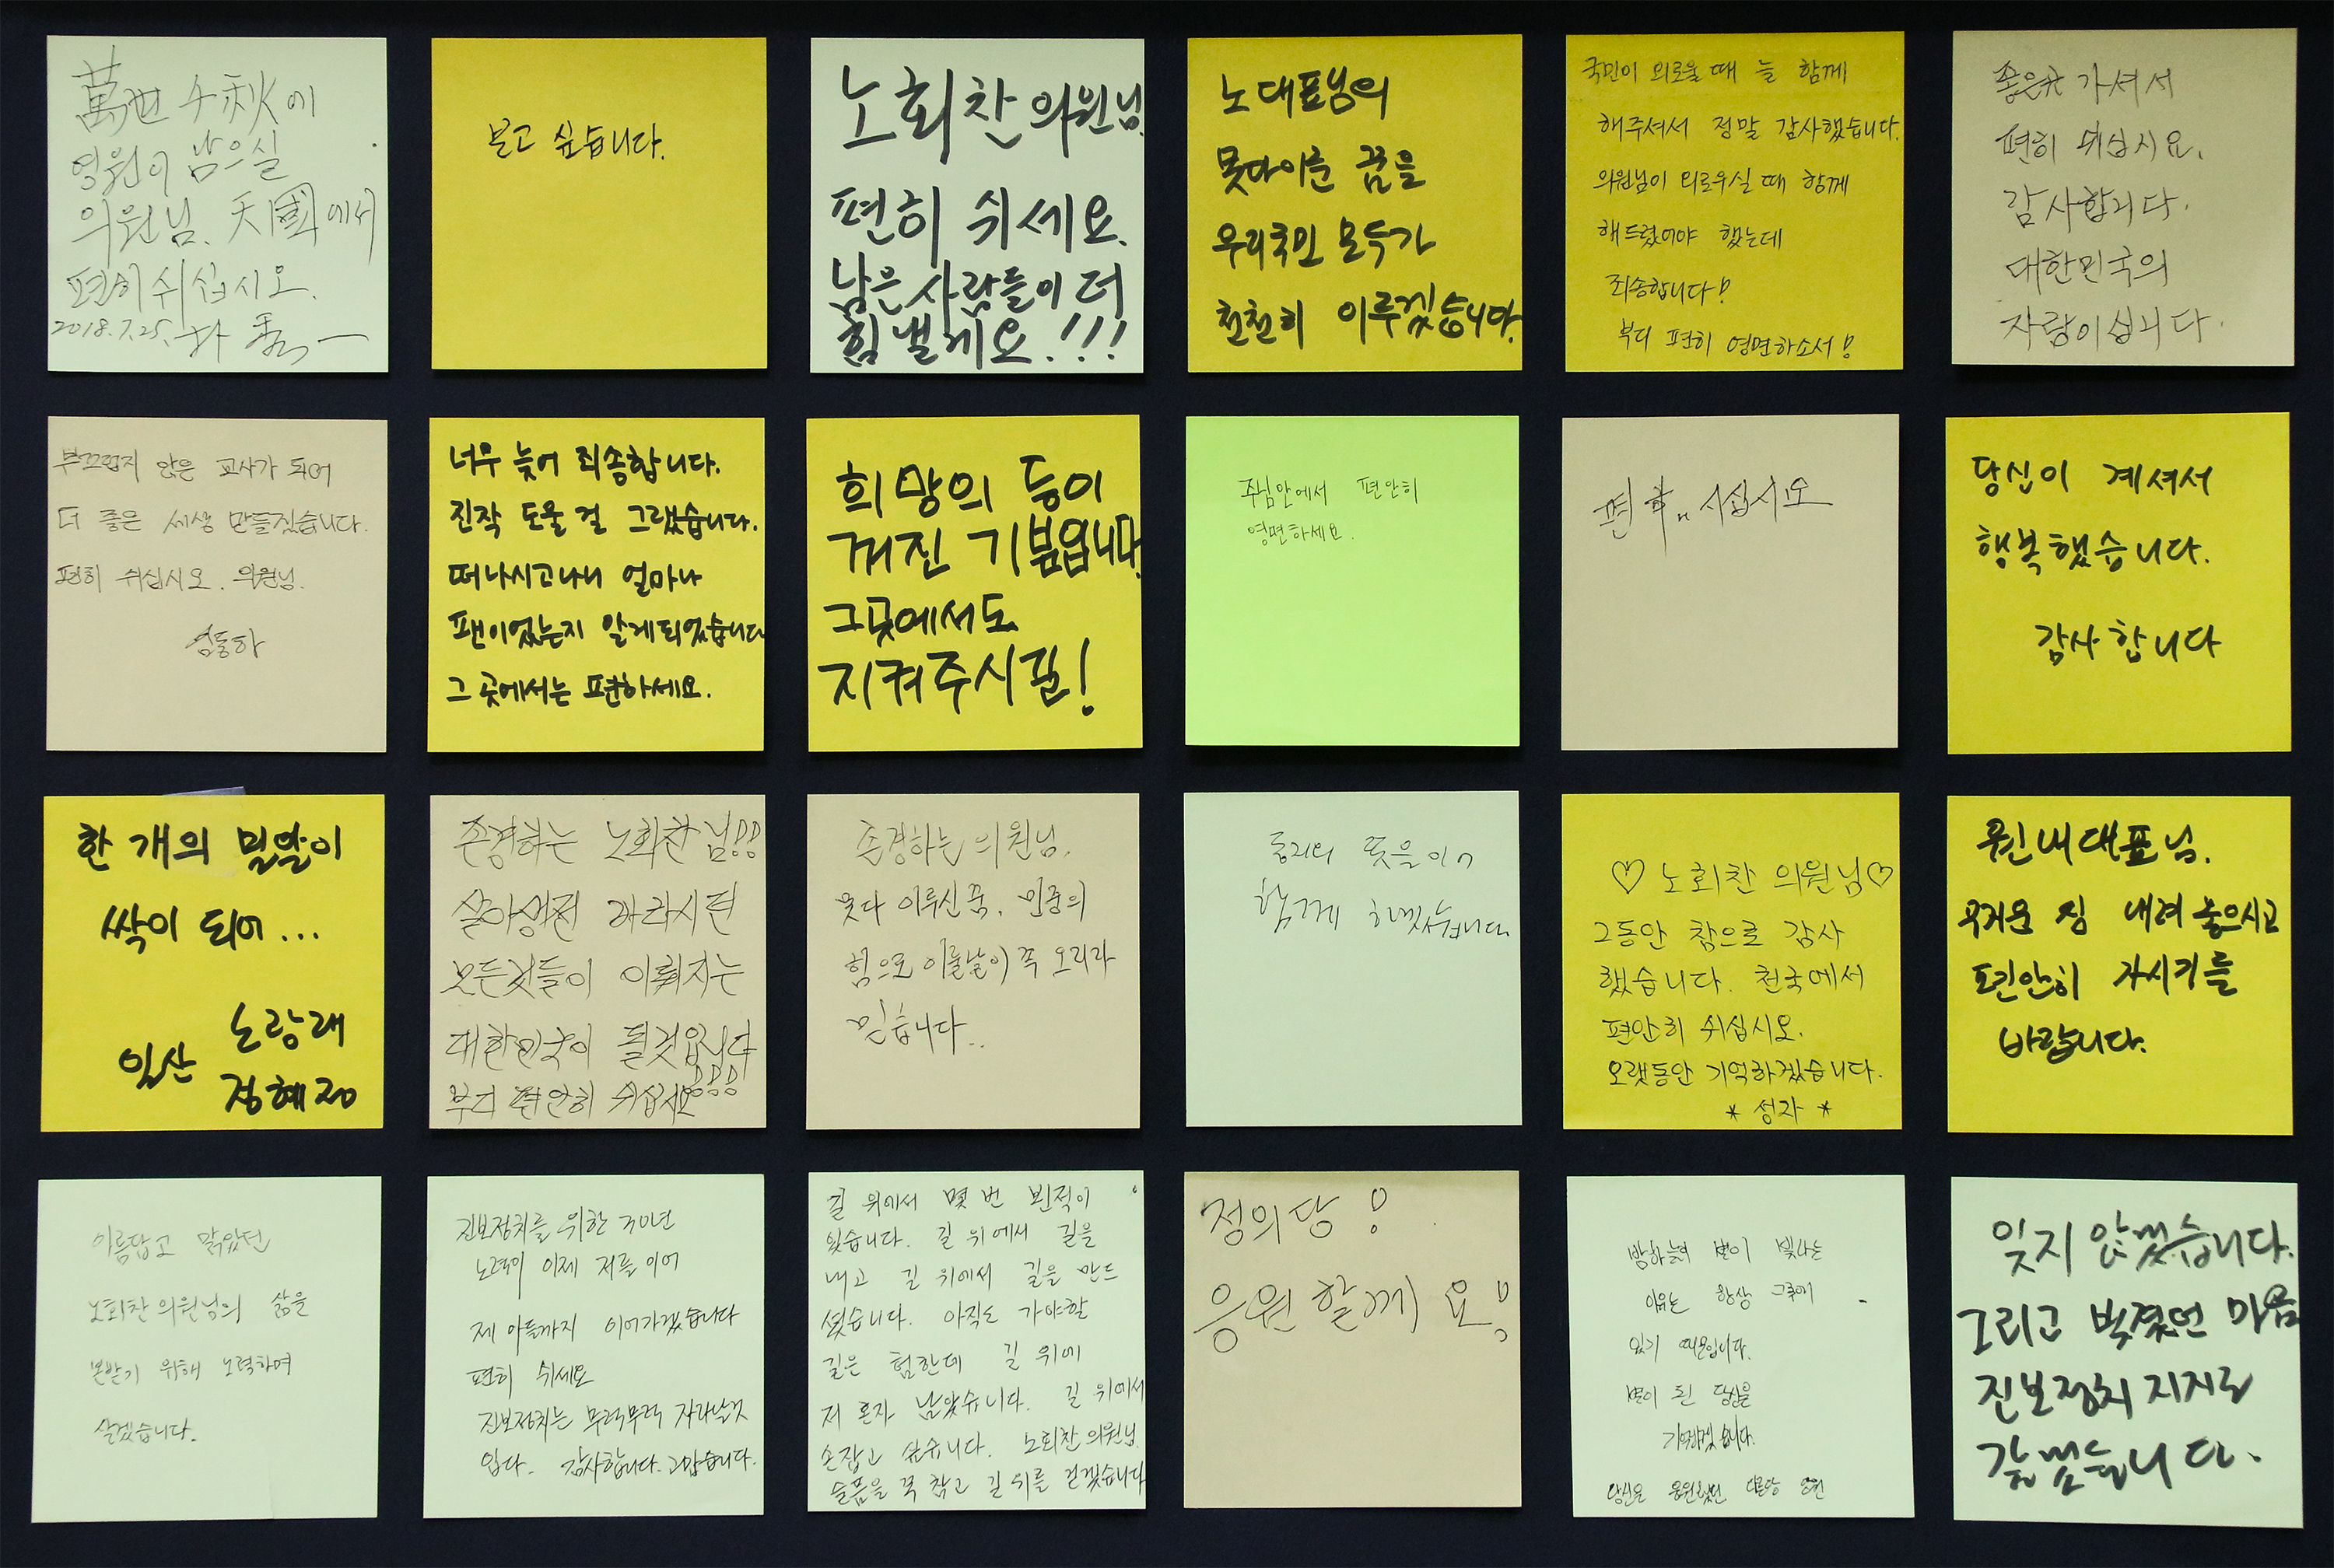 萬世 千秋에
영원이 남으실
의원님. 天國에서
편히 쉬십시오.
2018.7.25. 朴 秀 一
보고 싶습니다.
노회찬 의원님
편히 쉬세요.
남은 사람들이 더
힘낼게요.!!!
노대표님의
못다이룬 꿈을
우리국민 모두가
천천히 이루겠습니다.
국민이 외로울 때 늘 함께
해주셔서 정말 감사했습니다.
의원님이 외로우실 때 함께
해드렸어야 했는데
죄송합니다!
부디 편히 영면하소서!
좋은곳 가셔서
편히 쉬십시요.
감사합니다.
대한민국의
자랑이십니다.
부끄럽지 않은 교사가 되어
더 좋은 세상 만들겠습니다.
편히 쉬십시오. 의원님.
엄동하
너무 늦어 죄송합니다.
진작 도울 걸 그랬습니다.
떠나시고나니 얼마나
팬이었는지 알게되었습니다
그 곳에서는 편하세요.
희망의 등이
꺼진 기분입니다.
그곳에서도
지켜주시길!
주님안에서 편안히
영면하세요.
편히 쉬십시오
당신이 계셔서
행복했습니다.
감사합니다
한 개의 밀알이
싹이 되어...
일산 노랑래
정혜정
존경하는 노회찬님!!
살아생전 바라시던
모든것들이 이뤄지는
대한민국이 될것입니다
부디 편안히 쉬십시오!!!
존경하는 의원님.
못다 이루신 꿈. 민중의
힘으로 이룰날이 꼭 오리라
믿습니다..
동지의 뜻을 이어
함께 하겠습니다.
♡ 노회찬 의원님♡
그동안 참으로 감사
했습니다. 천국에서
편안히 쉬십시오.
오랫동안 기억하겠습니다.
* 성자 *
원내대표님.
무거운 짐 내려놓으시고
편안히 가시기를
바랍니다.
아름답고 맑았던
노회찬 의원님의 삶을
본받기 위해 노력하며
살겠습니다.
진보정치를 위한 30년
노력이 이제 저를 이어
제 아들까지 이어가겠습니다
편히 쉬세요
진보정치는 무럭무럭 자라날것
입다. 감사합니다. 고맙습니다.
길 위에서 몇 번 뵌적이
있습니다. 길 위에서 길을
내고 길 위에서 길을 만드
셨습니다. 아직도 가야할
길은 험한데 길 위에
저 혼자 남았습니다. 길 위에서
손잡고 싶습니다. 노회찬 의원님
슬픔을 꾹 참고 길 위를 걷겠습니다
정의당!
응원할께요!
밤하늘에 별이 빛나는
이유는 항상 그곳에
있기 때문입니다.
별이 된 당신을
기억하겠습니다.
당신을 응원했던
잊지 않겠습니다.
그리고 빚졌던 마음
진보정치 지지로
갚겠습니다.